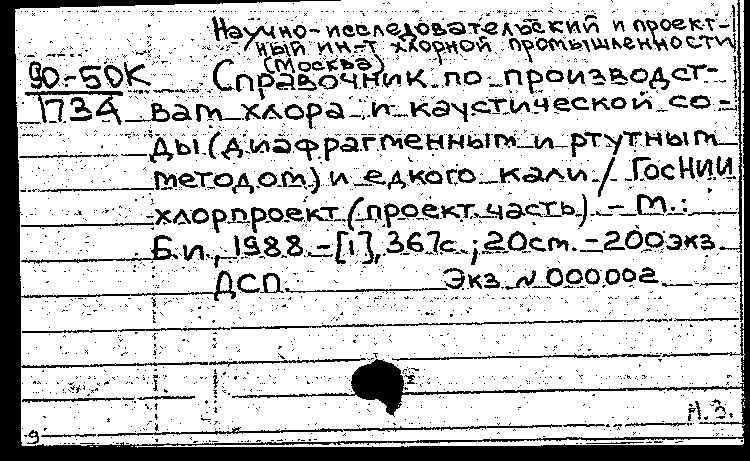 Научно-исследовательский и проект-
ный ин-т хлорной промышленности
(Москва)
90-50К Справочник по производст-
1734 вам хлора и каустической со-
ды (диафрагменным и ртутным
методом) и едкого кали / ГосНИИ
хлорпроект (проект. часть). - М.:
Б.и., 1988. - [1], 367с.; 20см. - 200экз
ДСП. Экз. N 000002
М.З.
9